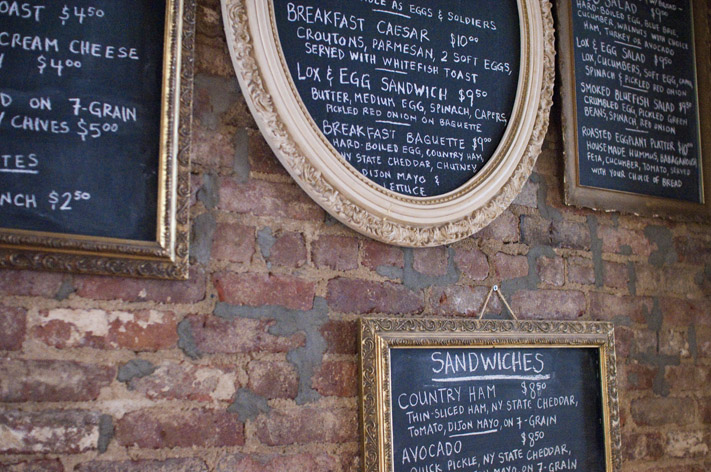 OAST $4 50
CREAM CHEESE
$4 00
D ON 7-GRAIN
/ CHIVES $5 00
TES
NCH $2 50
AS EGGS & SOLDIERS
BREAKFAST CAESAR $10 00
CROUTONS, PARMESAN, 2 SOFT EGGS,
SERVED WITH WHITEFISH TOAST
LOX & EGG SANDWICH $9 50
BUTTER, MEDIUM EGG, SPINACH, CAPERS,
PICKLED RED ONION ON BAGUETTE
BREAKFAST BAGUETTE $9 00
HARD-BOILED EGG, COUNTRY HAM
NY STATE CHEDDAR, CHUTNEY
DIJON MAYO &
LETTUCE
SALAD
HARD-BOILED EGG, BLUE
CUCUMBER WALNUTS WITH CHOICE
HAM, TURKEY OR AVOCADO
LOX & EGG SALAD
LOX, CUCUMBERS, SOFT EGG,
SPINACH & PICKLED RED ONION
SMOKED BLUEFISH SALAD
CRUMBLED EGG, PICKLED GREEN
BEANS, SPINACH, RED ONION
ROASTED EGGPLANT PLATTER
HOUSEMADE HUMMUS,
FETA, CUCUMBER, TOMATO, SERVED
WITH YOUR CHOICE OF BREAD
SANDWICHES
COUNTRY HAM $8 50
THIN-SLICED HAM, NY STATE CHEDDAR,
TOMATO, DIJON MAYO, ON 7-GRAIN
AVOCADO $8 50
QUICK PICKLE, NY STATE CHEDDAR,
MAYO ON 7-GRAIN